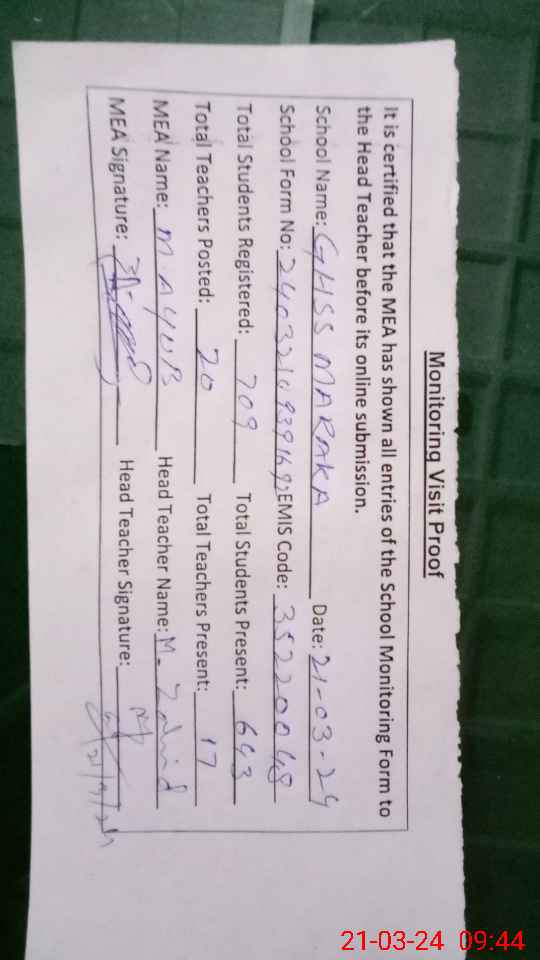 Monitoring Visit Proof
It is certified that the MEA has shown all entries of the School Monitoring Form to
the Head Teacher before its online submission.
School Name: GHSS MARAKA Date: 21-03-24
School Form No: EMIS Code: 35220048
Total Students Registered: 709 Total Students Present: 643
Total Teachers Posted: 20 Total Teachers Present: 17
MEA Name: M AYUB Head Teacher Name: M. Zahid
MEA Signature: Head Teacher Signature:
21-03-24 09:44